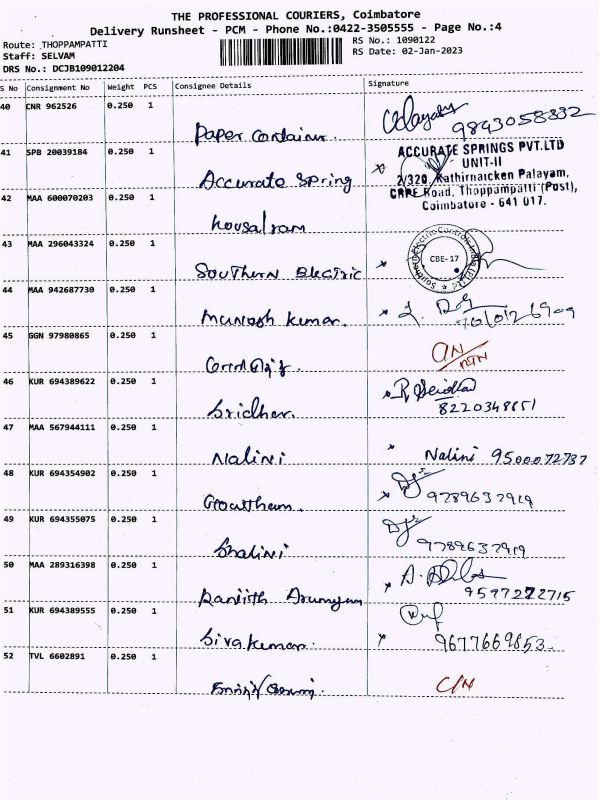 THE PROFESSIONAL COURIERS, Coimbatore
Delivery Runsheet - PCM - Phone No.:0422-3505555 - Page No.:4
Route: THOPPAMPATTI
RS No.: 1090122
Staff: SELVAM
RS Date: 02-Jan-2023
DRS No.: DCJB109012204
S No Consignment No Weight PCS Consignee Details Signature
40 CNR 962526 0.250 1
Paper Container. 9843058332
41 SPB 20039184 0.250 1
Accurate Spring
ACCURATE SPRINGS PVT.LTD
UNIT-II
2/320, Kathirnaicken Palayam,
CRPF Road, Thoppampatti (Post),
Coimbatore - 641 017.
42 MAA 600070203 0.250 1
Kousalram
43 MAA 296043324 0.250 1
Southern Electric
CBE-17
44 MAA 942687730 0.250 1
Kumar.
45 GGN 97980865 0.250 1
46 KUR 694389622 0.250 1
Sridhar.
8220348651
47 MAA 567944111 0.250 1
Nalini Nalini 9500072737
48 KUR 694354902 0.250 1
Gowtham. 9789637919
49 KUR 694355075 0.250 1
Shalini 9789637919
50 MAA 289316398 0.250 1
9597272715
51 KUR 694389555 0.250 1
Sivakumar. 9677669853
52 TVL 6602891 0.250 1
C/N